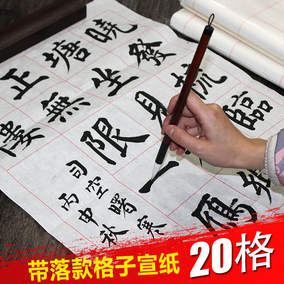 曉發梳臨
塘坐見
正無限一雁
司空曙寒
丙申秋
带落款格子宣纸
20格